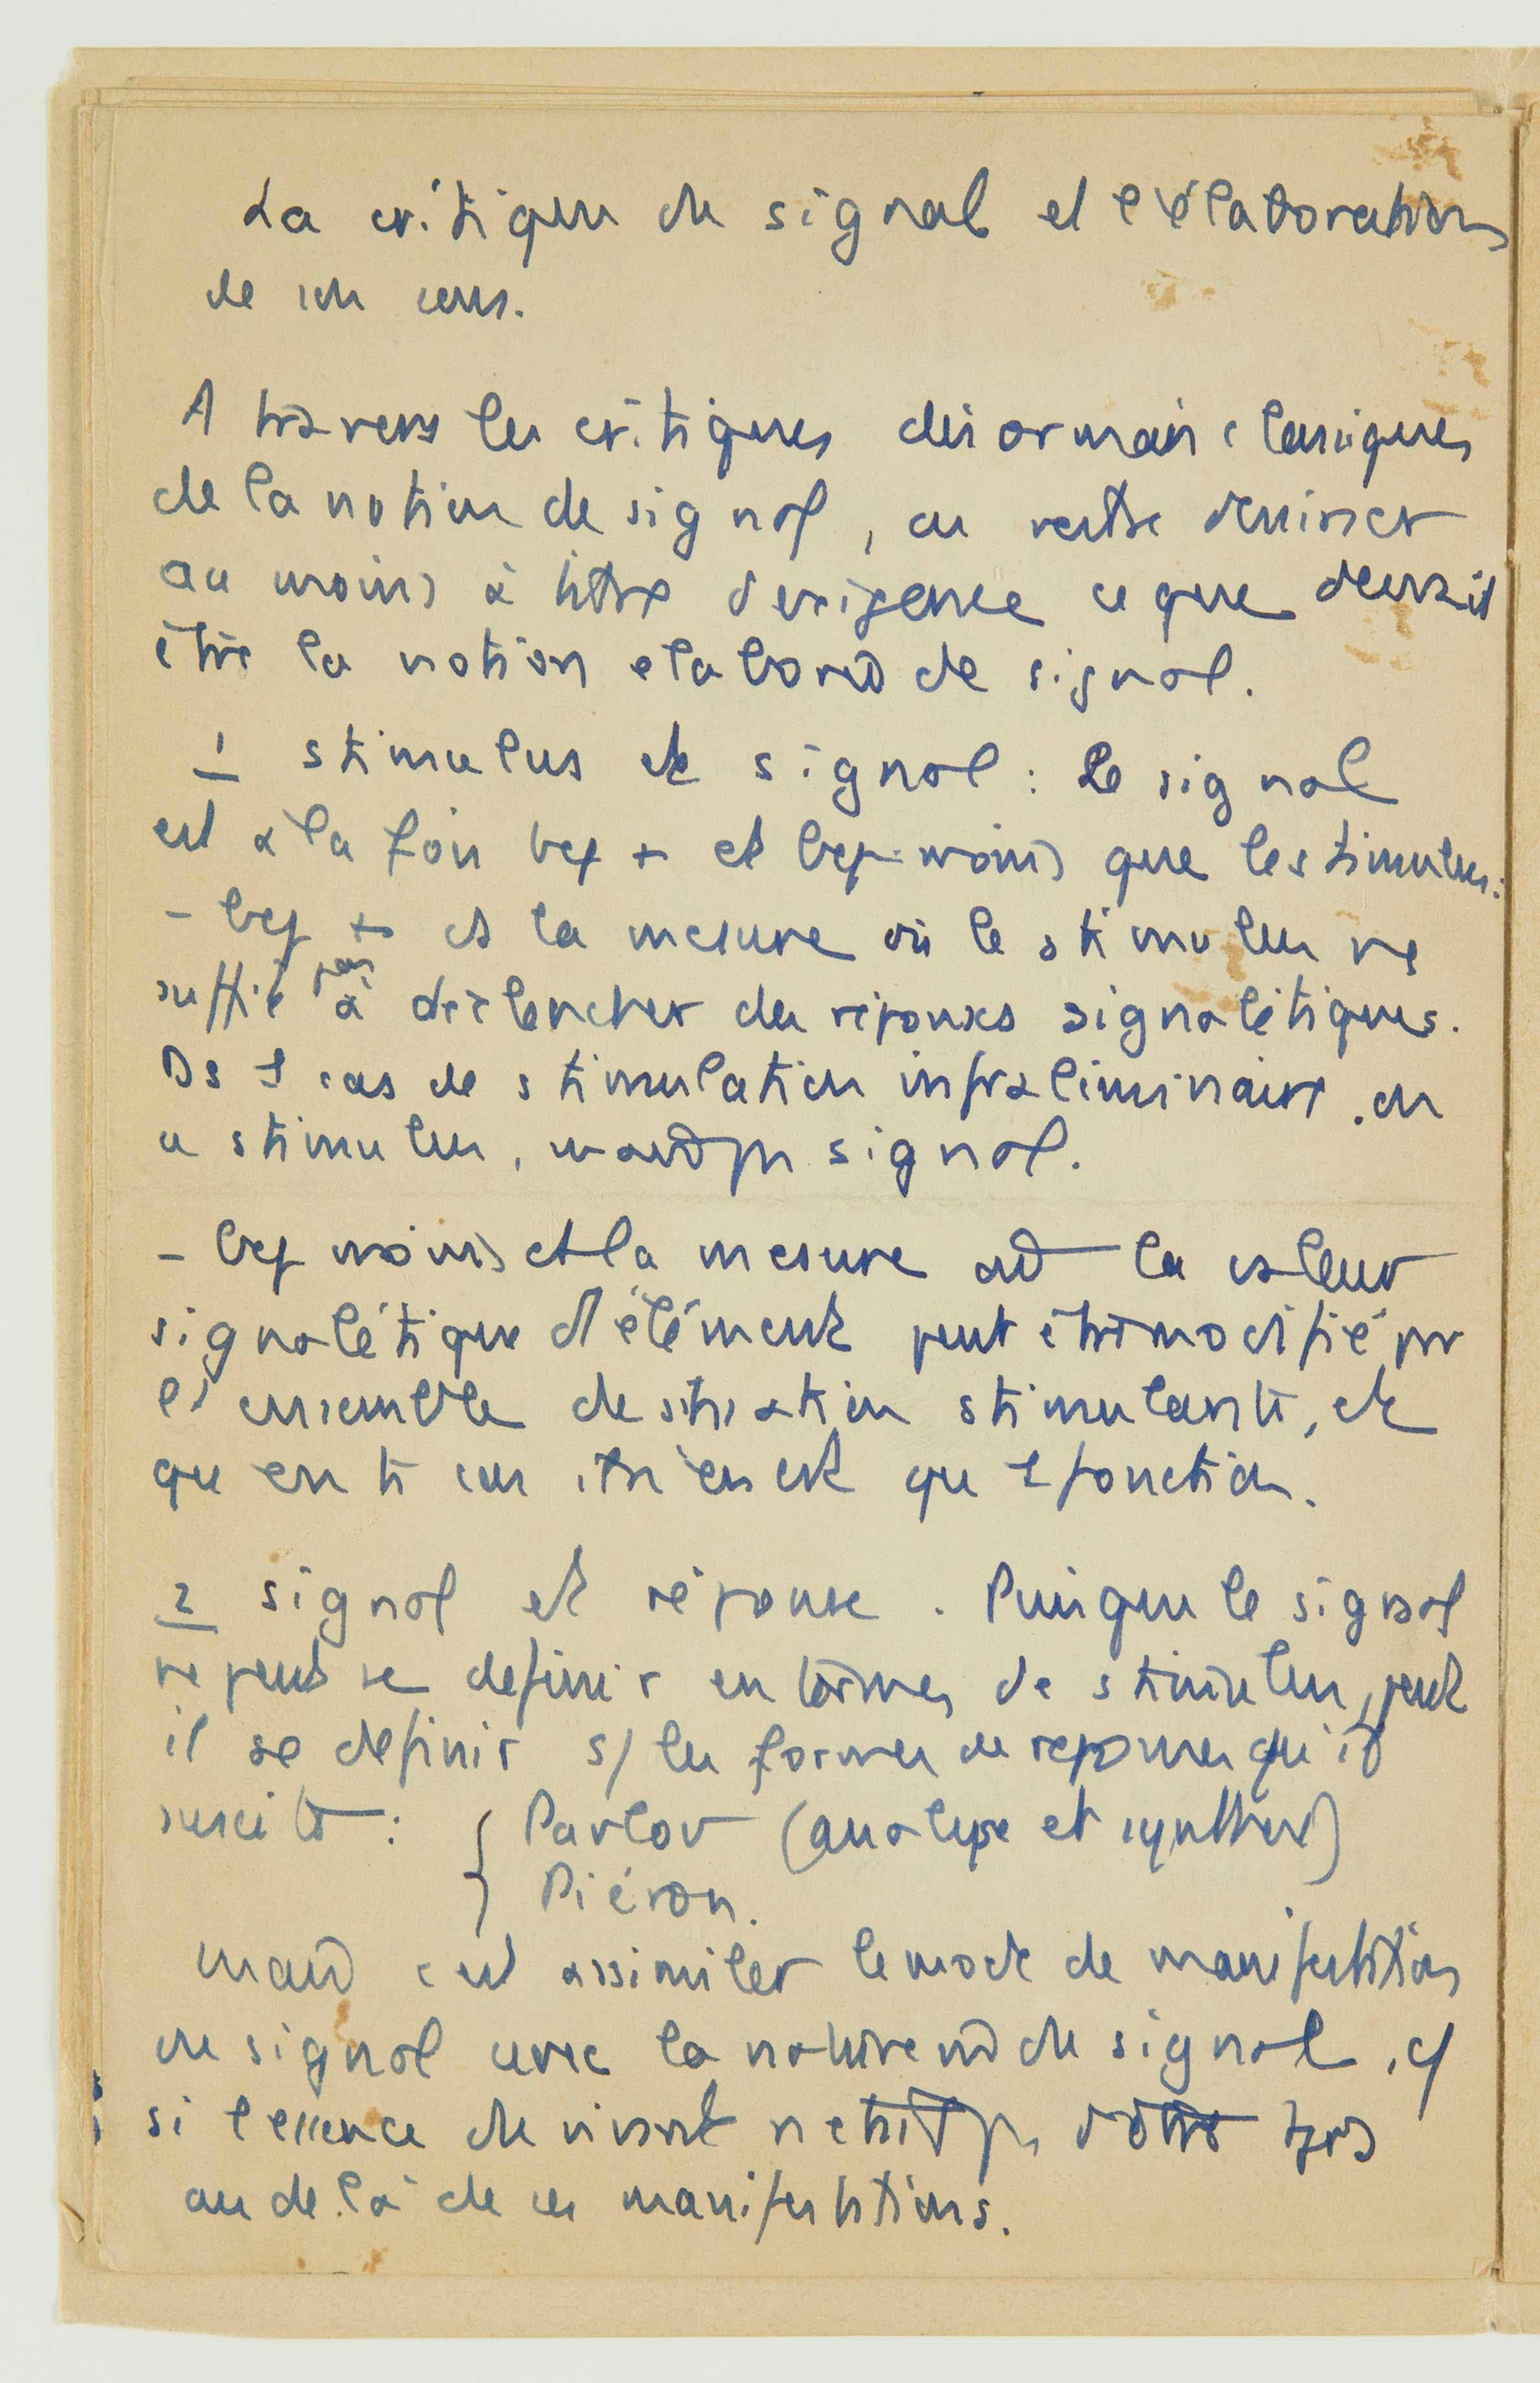 La critique du signal et l'élaboration
de son sens.
A travers les critiques désormais classiques
de la notion de signal, on dessiner
au moins à titre d'exigence ce que devrait
être la notion elaborée de signal.
1 stimulus et signal : Le signal
est à la fois bcp + et bcp moins que le stimulus :
- bcp + ds la mesure où le stimulus ne
suffit pas à déclencher des réponses signalétiques.
Ds 1 cas de stimulation infraliminaire, on
a stimulus, signal.
- bcp moins ds la mesure où la valeur
signalétique d'1 élément peut être modifié par
l'ensemble de situation stimulante, et
qu' n'en est que 1 fonction.
2 signal et réponse. Puisque le signal
ne peut se définir en termes de stimulus, peut
il se definir s/ les formes de reponses qu'il
suscite : { Pavlov (analyse et synthèse)
Piéron.
c'est assimiler le mode de manifestation
du signal avec la nature du signal, cf
si l'essence du vivant
au delà de ces manifestations.